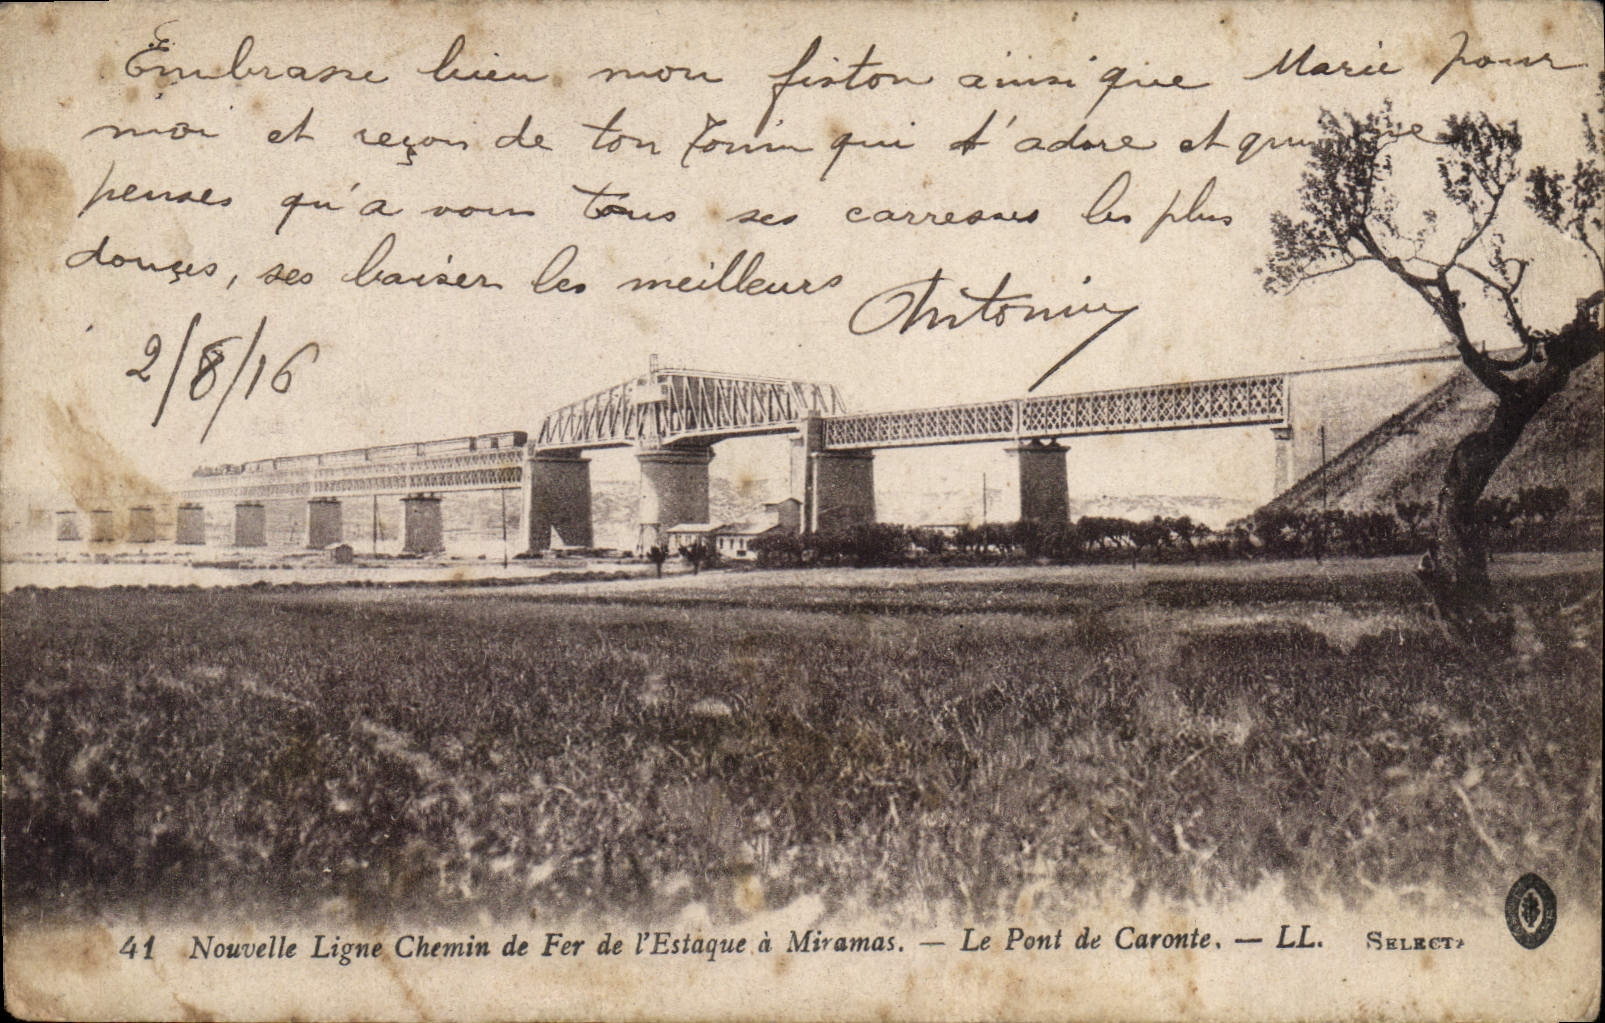 Embrasse bien mon fiston ainsi que Marie pour
moi et reçois de ton Tonin qui t'adore et qui ne
penses qu'a vous tous ses caresses les plus
douçes, ses baiser les meilleurs
Antonin
2/8/16
41 Nouvelle Ligne Chemin de Fer de l'Estaque à Miramas. — Le Pont de Caronte. — LL. SELECTA